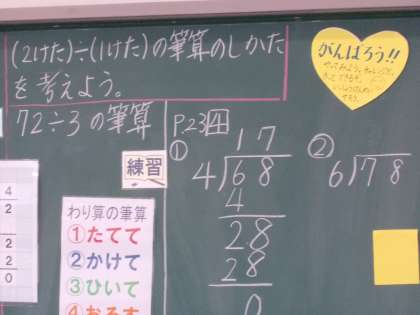 (2けた)÷(1けた)の筆算のしかた
を考えよう。
72÷3の筆算
がんばろう!!
練習
P.23 4
① 17
4)68
4
28
28
0
② 6)78
4
2
2
2
0
わり算の筆算
①たてて
②かけて
③ひいて
④おろす